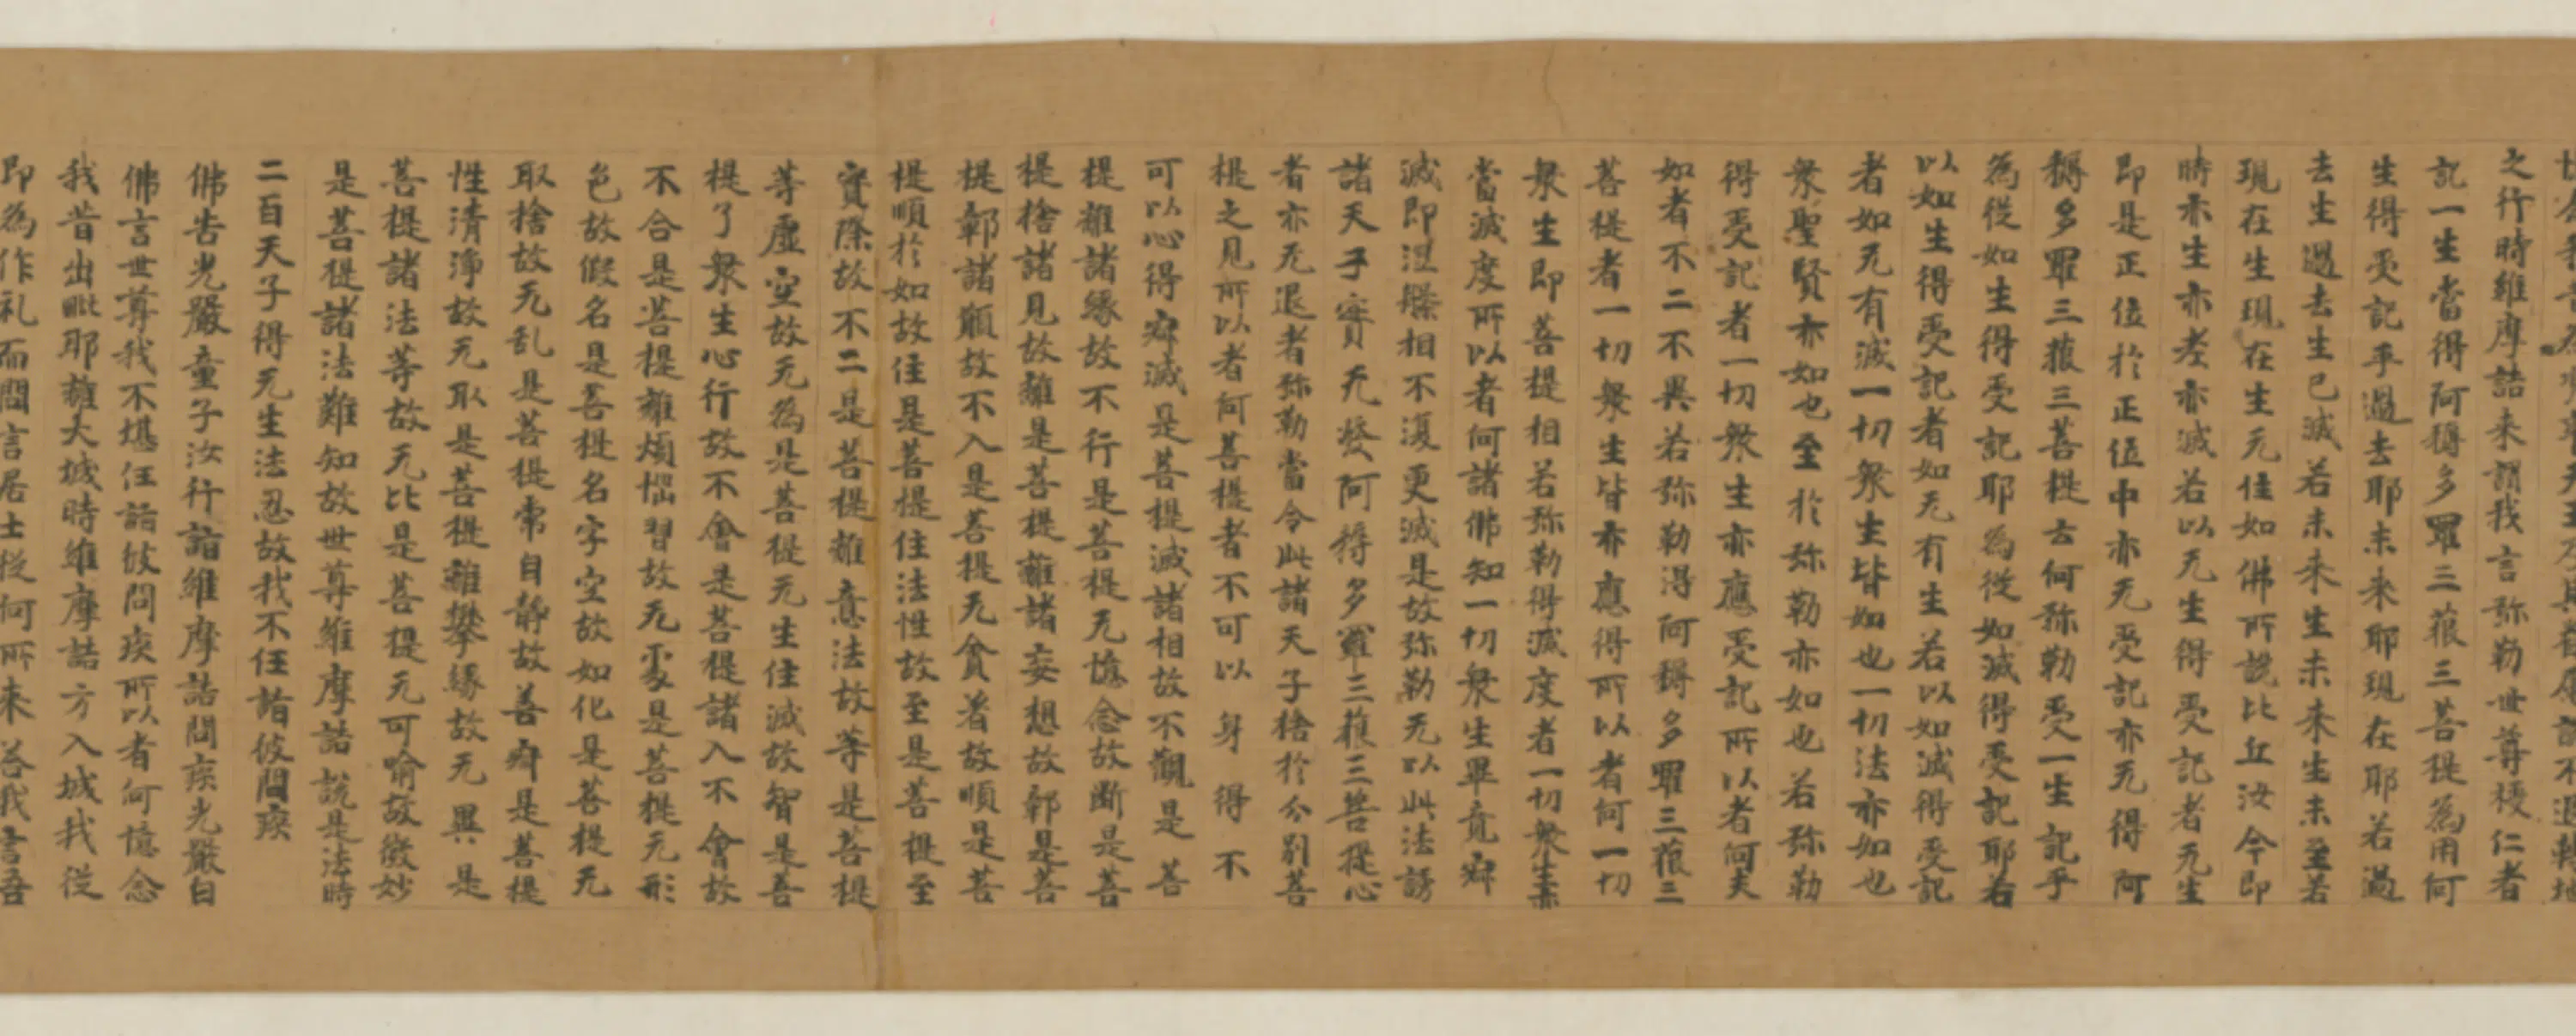 之行時維摩詰来謂我言弥勒世尊授仁者
記一生當得阿耨多羅三藐三菩提為用何
生得受記乎過去耶未来耶現在耶若過
去生過去生已滅若未来生未来生未至若
現在生現在生无住如佛所說比丘汝今即
時亦生亦老亦滅若以无生得受記者无生
即是正位於正位中亦无受記亦无得阿
耨多羅三藐三菩提云何弥勒受一生記乎
為從如生得受記耶為從如滅得受記耶若
以如生得受記者如无有生若以如滅得受記
者如无有滅一切衆生皆如也一切法亦如也
衆聖賢亦如也至於弥勒亦如也若弥勒
得受記者一切衆生亦應受記所以者何夫
如者不二不異若弥勒得阿耨多羅三藐三
菩提者一切衆生皆亦應得所以者何一切
衆生即菩提相若弥勒得滅度者一切衆生亦
當滅度所以者何諸佛知一切衆生畢竟寂
滅即涅槃相不復更滅是故弥勒无以此法誘
諸天子實无發阿耨多羅三藐三菩提心
者亦无退者弥勒當令此諸天子捨於分別菩
提之見所以者何菩提者不可以身得不
可以心得寂滅是菩提滅諸相故不觀是菩
提離諸緣故不行是菩提无憶念故斷是菩
提捨諸見故離是菩提離諸妄想故鄣是菩
提鄣諸願故不入是菩提无貪著故順是菩
提順於如故住是菩提住法性故至是菩提至
實際故不二是菩提離意法故等是菩提
等虛空故无為是菩提无生住滅故智是菩
提了衆生心行故不會是菩提諸入不會故
不合是菩提離煩惱習故无處是菩提无形
色故假名是菩提名字空故如化是菩提无
取捨故无乱是菩提常自静故善寂是菩提
性清淨故无取是菩提離攀緣故无異是
菩提諸法等故无比是菩提无可喻故微妙
是菩提諸法難知故世尊維摩詰說是法時
二百天子得无生法忍故我不任詣彼問疾
佛告光嚴童子汝行詣維摩詰問疾光嚴白
佛言世尊我不堪任詣彼問疾所以者何憶念
我昔出毗耶離大城時維摩詰方入城我從
即為作礼而問言居士從何所来荅我言吾